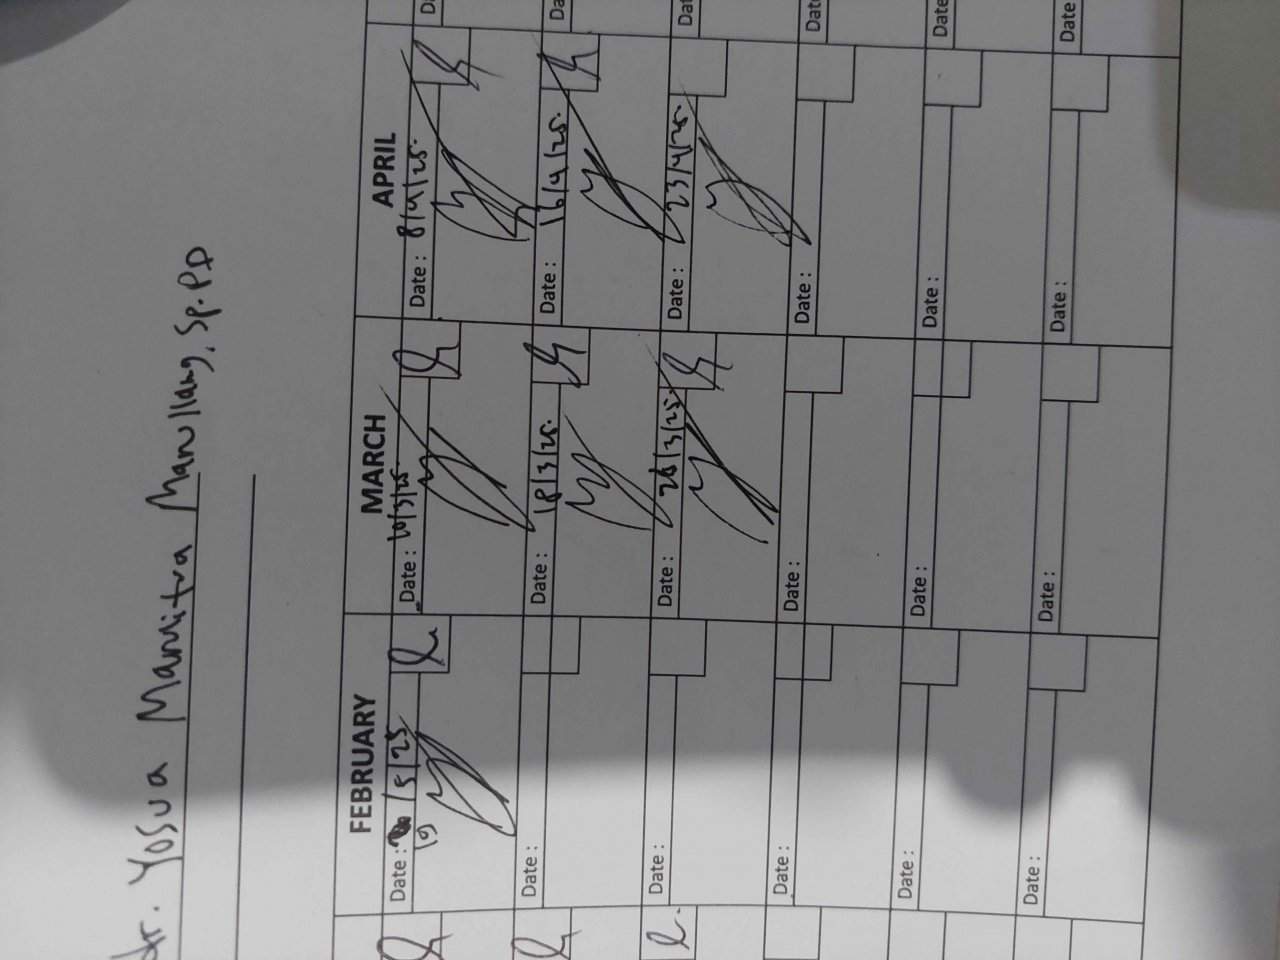 dr. Yosua Marnitra Manullang, Sp.PD
FEBRUARY MARCH APRIL
Date : /5/25 Date : 10/3/25 Date : 8/4/25.
19
Date : Date : 18/3/25. Date : 16/4/25.
Date : Date : 26/3/25. Date : 23/4/25
Date : Date : Date :
Date : Date : Date :
Date : Date : Date :
Date
Date
Date